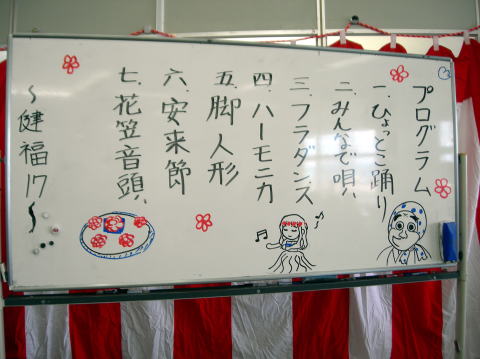 プログラム
一、ひょっとこ踊り
二、みんなで唄、
三、フラダンス
四、ハーモニカ
五、脚人形
六、安来節
七、花笠音頭、
～健福17～